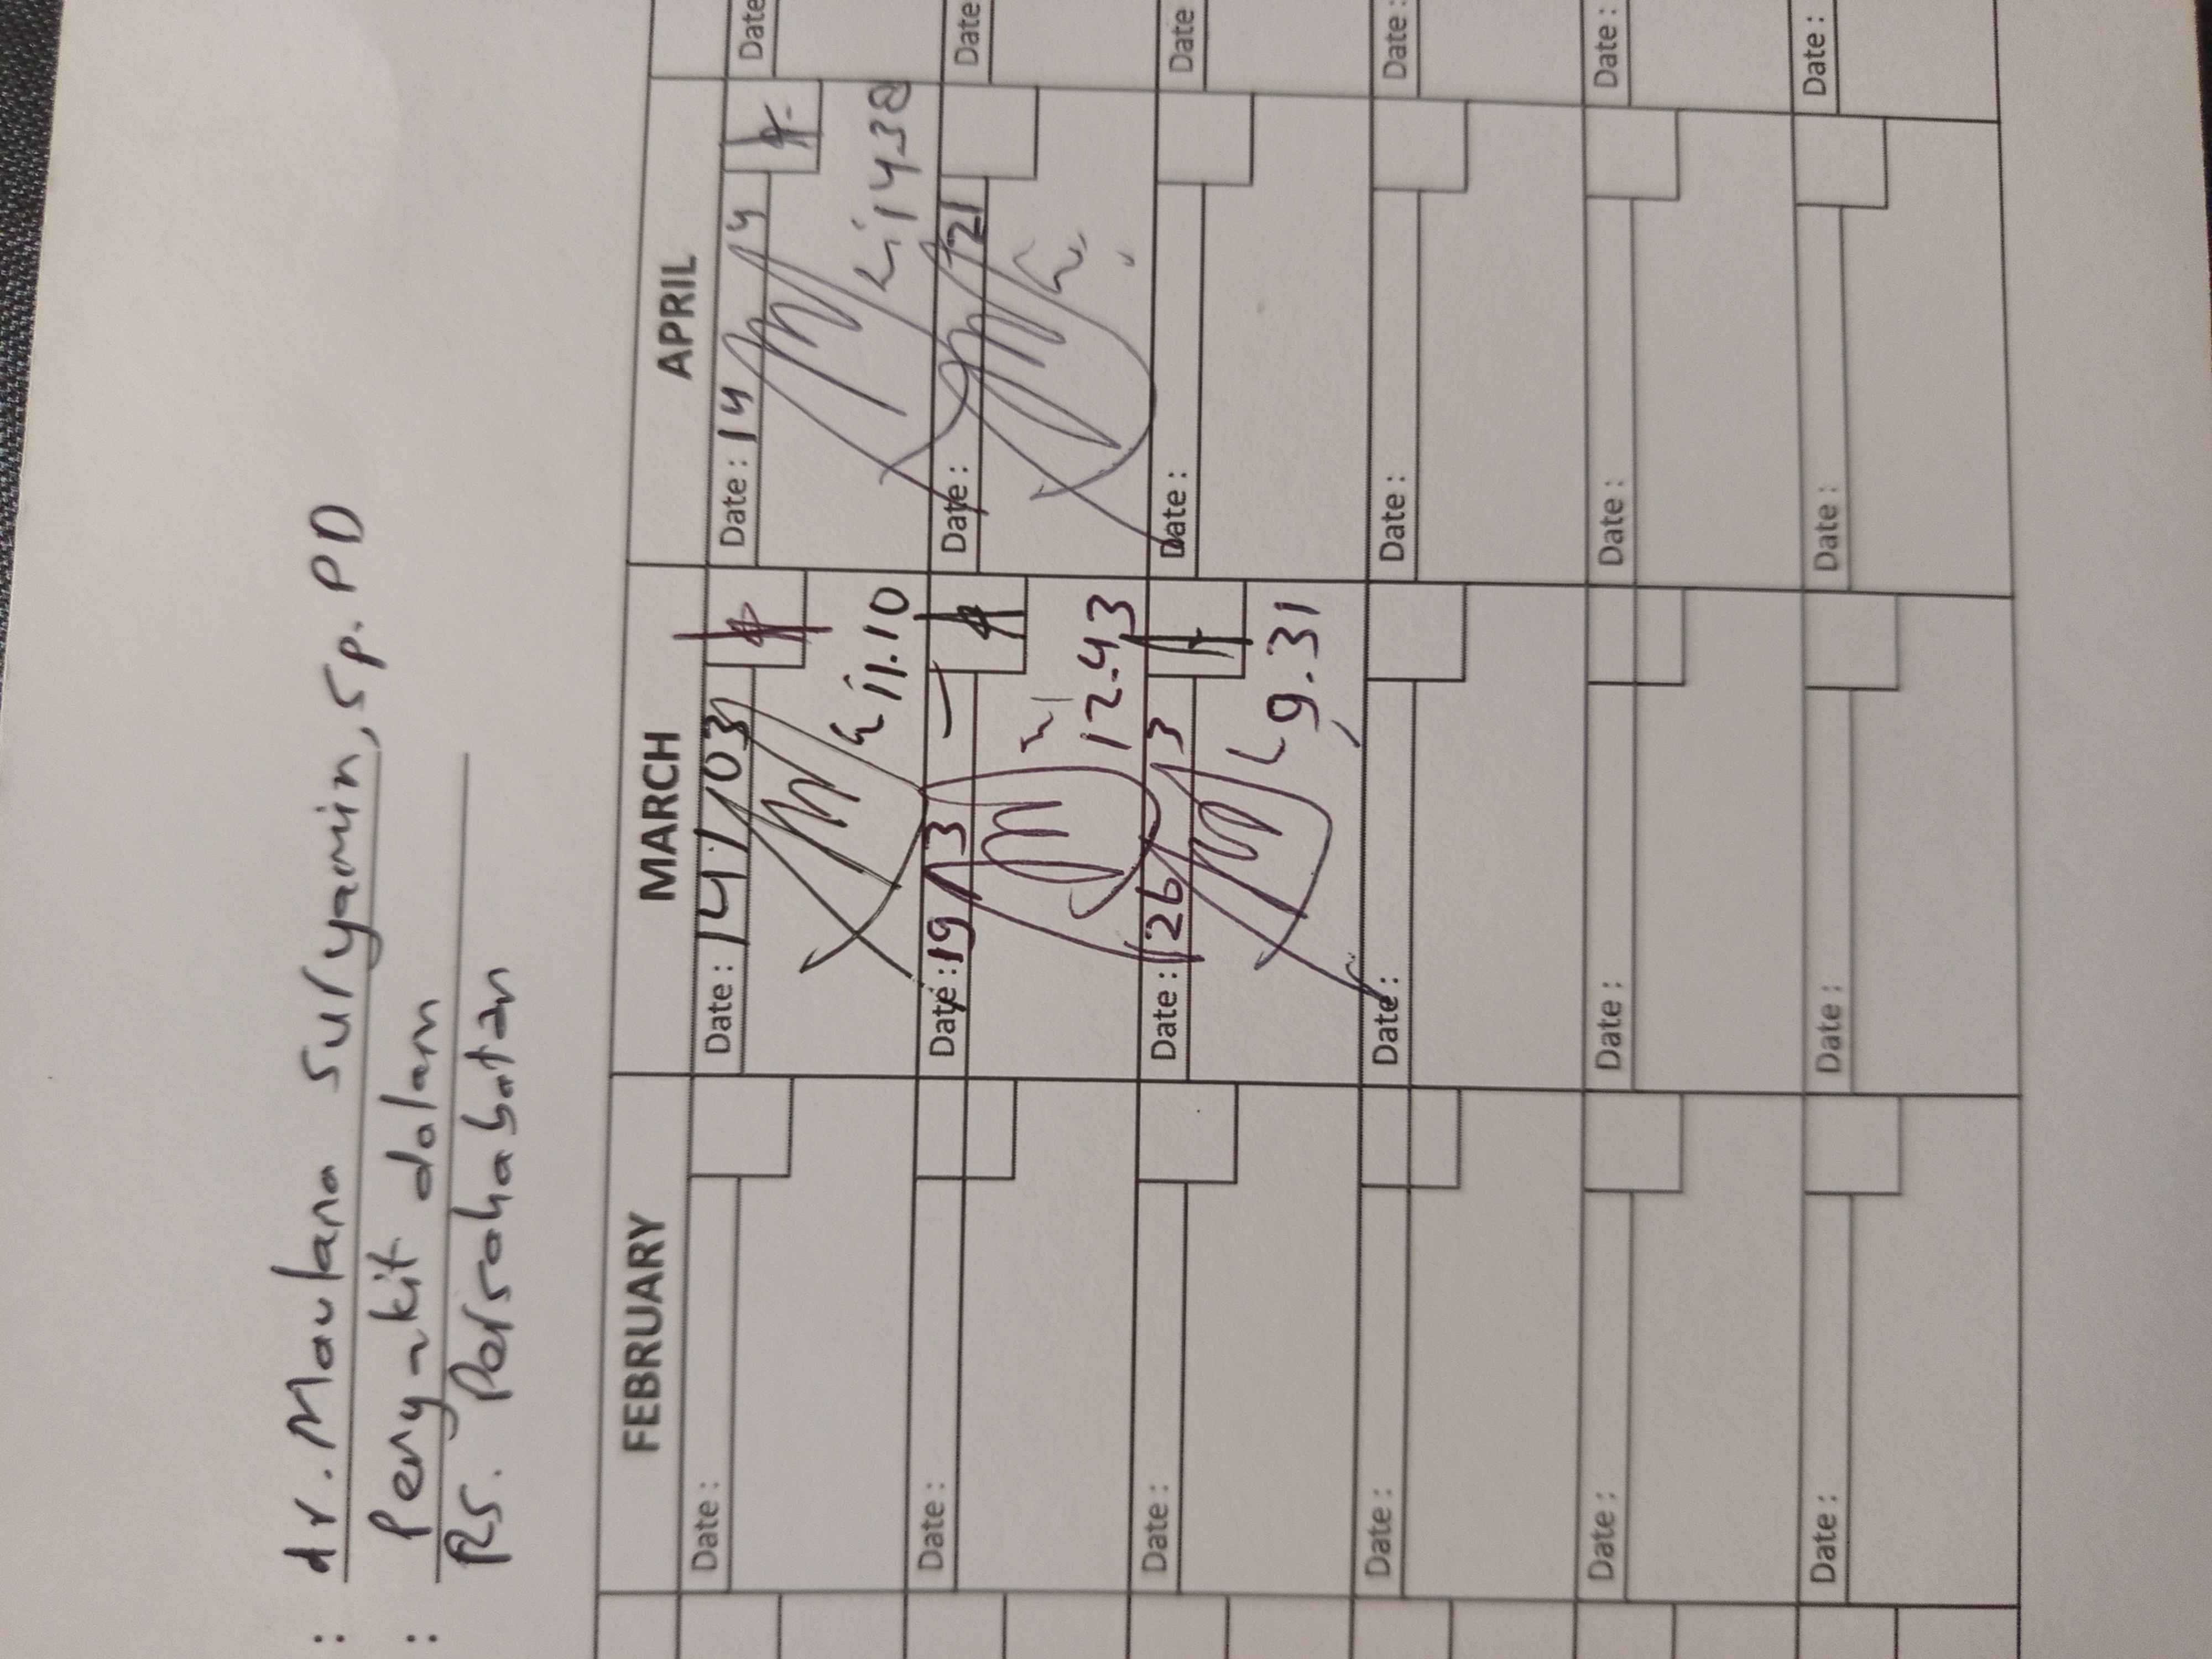 : dr. Maulana Suryamin, Sp. PD
: Penyakit dalam
RS. Persahabatan
FEBRUARY MARCH APRIL
Date : Date : 14/03 Date : 14 4 Date
11.10 1438
Date : Date : 19 3 Date : 21 Date
12-43
Date : Date : 26 3 Date : Date
9.31
Date : Date : Date : Date :
Date : Date : Date : Date :
Date : Date : Date : Date :